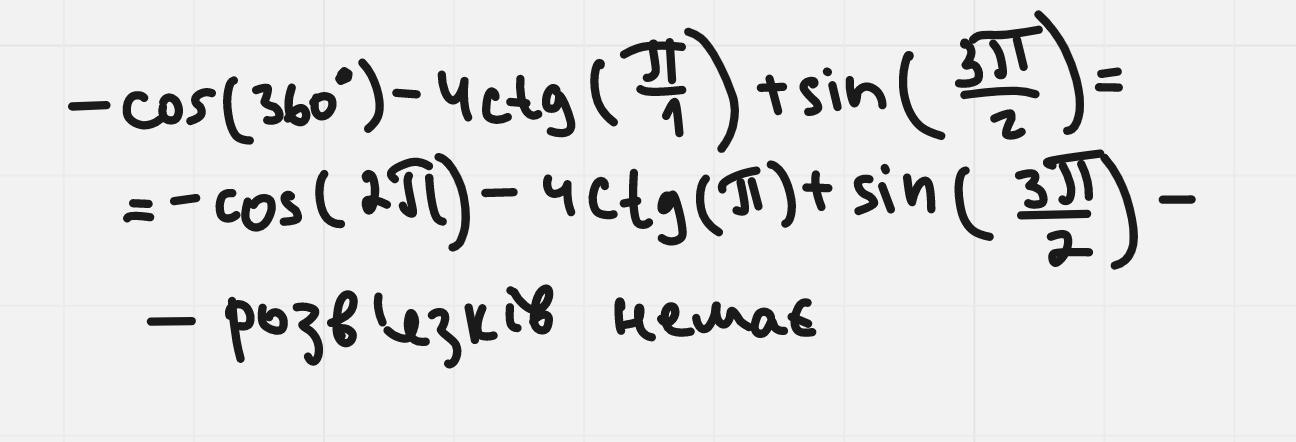 -cos(360°)-4ctg(π/1)+sin(3π/2)=
=-cos(2π)-4ctg(π)+sin(3π/2)-
- розв'язків немає